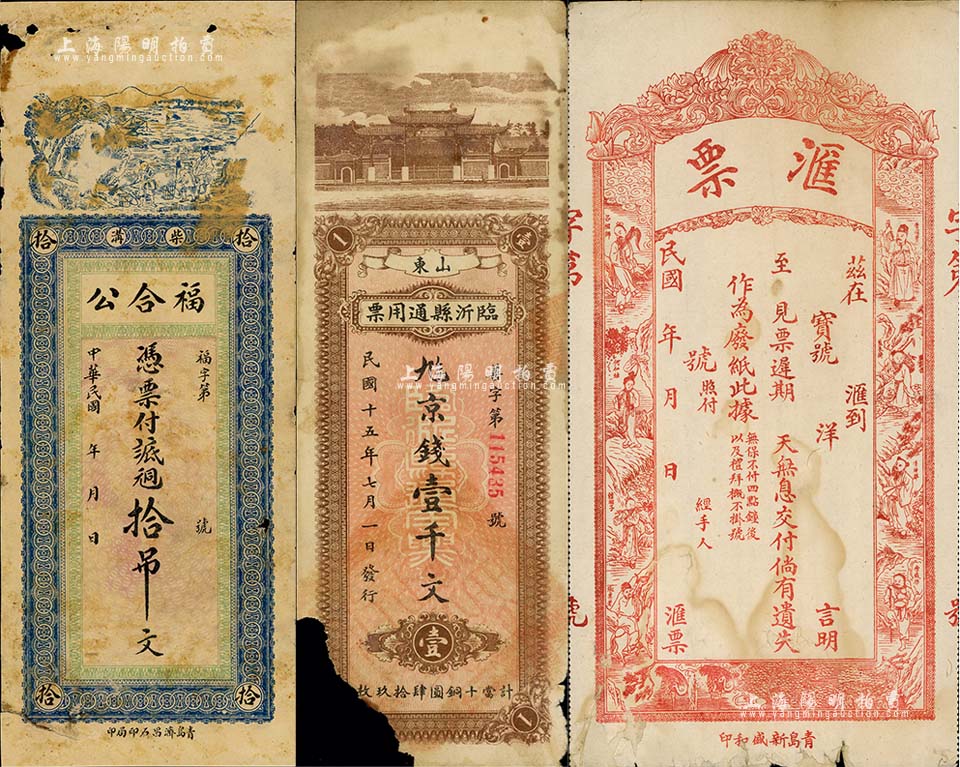 上海陽明拍賣
www.yangmingauction.com
拾
柴溝
拾
福合公
福字第
號
憑票付
拾吊文
中華民國
年
月
日
拾
拾
青島濟昌石印局印
壹
山東
臨沂縣通用票
字第115425號
九京錢壹千文
民國十五年七月一日發行
壹
計當十銅圓肆拾玖枚
上海陽明拍賣
www.yangmingauction.com
滙票
茲在
寶號
滙到
洋
言明
至
見票遲期
天無息交付倘有遺失
作為廢紙此據
無保不付四點鐘後
以及禮拜概不掛號
號
照付
經手人
民國
年
月
日
滙票
字第
號
青島新盛和印
上海陽明拍賣
www.yangmingauction.com